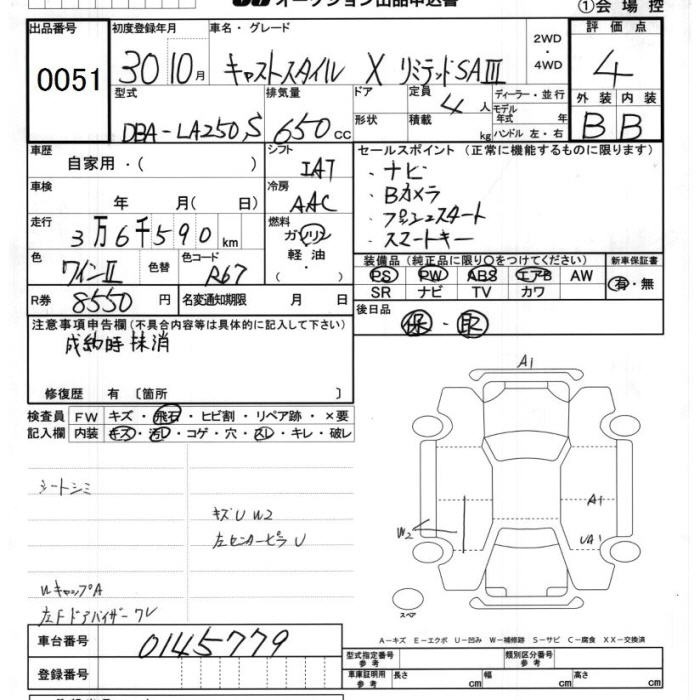 オークション出品申込書
①会場控
出品番号
0051
初度登録年月
30 10月
車名・グレード
キャストスタイル X リミテッドSAⅢ
2WD
・
4WD
評価点
4
型式
DBA-LA250S
排気量
650cc
ドア
形状
定員
4人
積載
kg
ディーラー・並行
モデル
年式 年
ハンドル 左・右
外装 内装
B B
車歴
自家用・( )
シフト
IAT
セールスポイント (正常に機能するものに限ります)
・ナビ
・Bカメラ
・プッシュスタート
・スマートキー
車検
年 月( 日)
冷房
AAC
走行
3万6千590km
燃料
ガソリン
軽油・
( )
色
ワインⅡ
色替
色コード
R67
装備品 (純正品に限り○をつけてください)
PS PW ABS エアB AW
SR ナビ TV カワ
新車保証書
有・無
R券
8550円
名変通知期限 月 日
後日品
保・取
注意事項申告欄 (不具合内容等は具体的に記入して下さい)
成約時抹消
修復歴 有 〔箇所 〕
検査員
記入欄
FW キズ・飛石・ヒビ割・リペア跡・×要
内装 キズ・汚レ・コゲ・穴・スレ・キレ・破レ
シートシミ
キズU W2
左センターピラU
WキャップA
左Fドアバイザーワレ
A1
A1
UA1
W2
スペア
A-キズ E-エクボ U-凹み W-補修跡 S-サビ C-腐食 XX-交換済
車台番号
0145779
登録番号
型式指定番号
参考
類別区分番号
参考
車庫証明用
参考
長さ cm
幅 cm
高さ cm